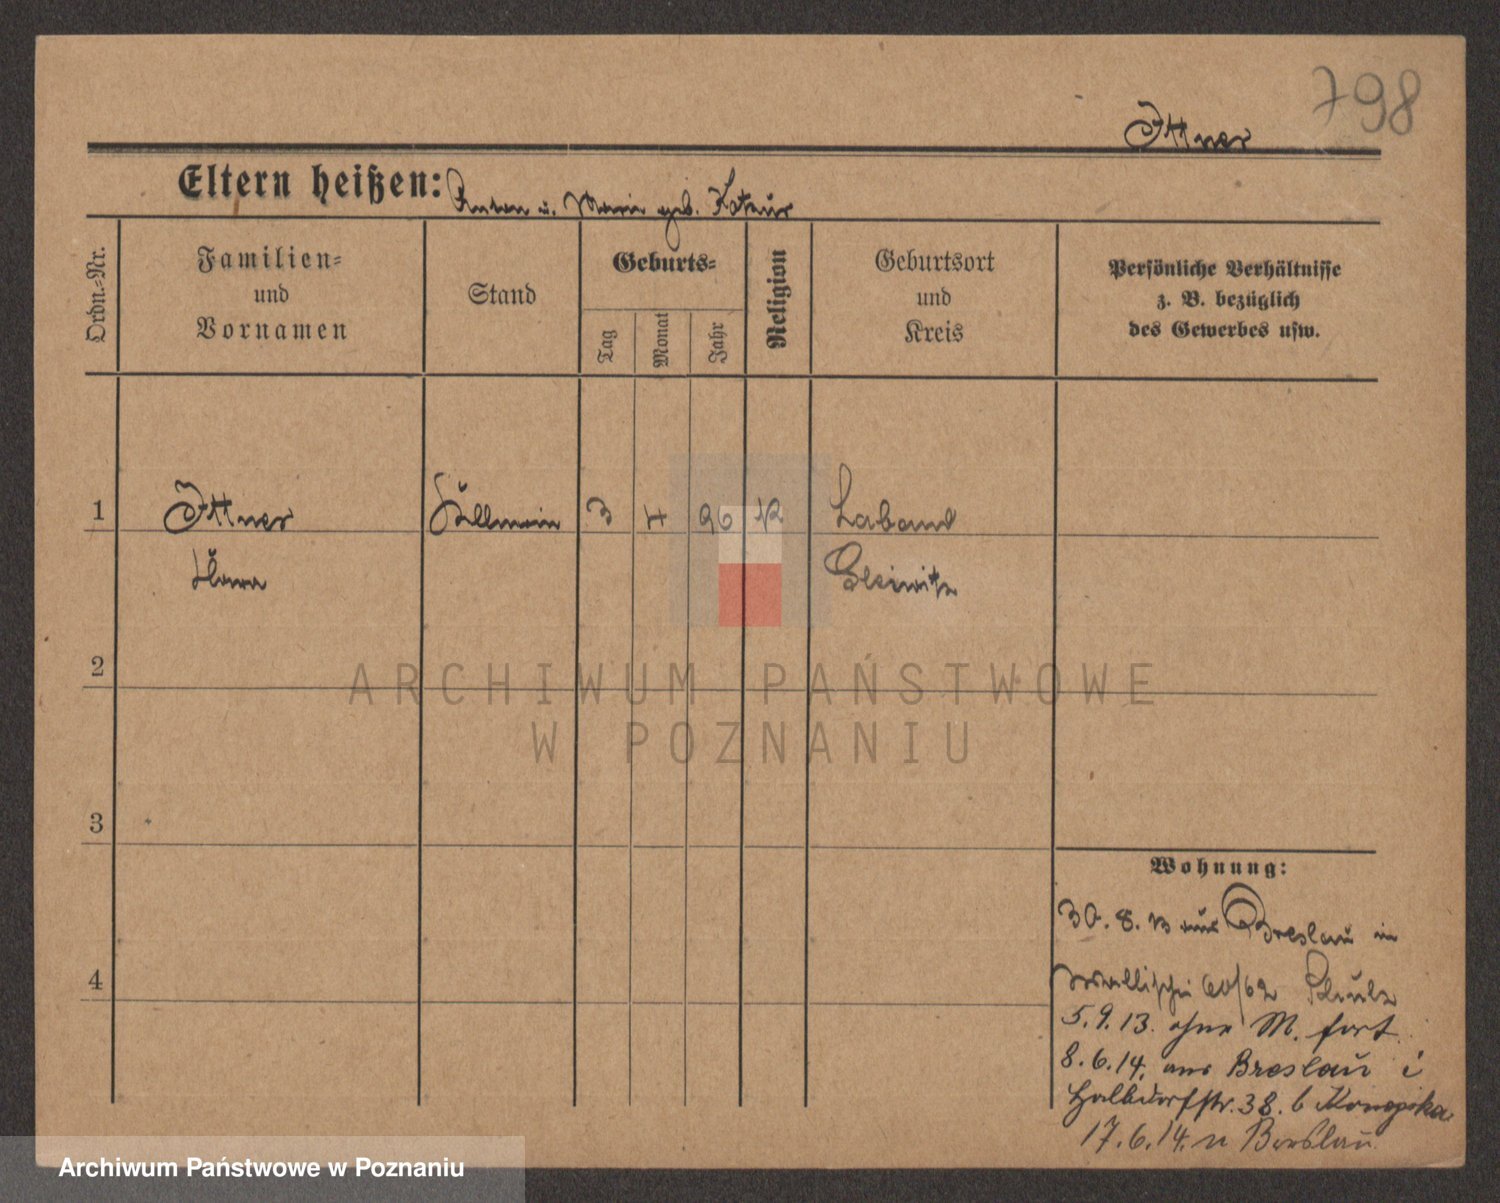 798
Ittner
Eltern heißen: Anton u. Marie geb.
Ordn.-Nr.
Familien-
und
Vornamen
Stand
Geburts-
Tag
Monat
Jahr
Religion
Geburtsort
und
Kreis
Persönliche Verhältnisse
z. B. bezüglich
des Gewerbes usw.
1 Ittner Kellnerin 3 4 96 K Laband
Klara Gleiwitz
2
3
4
Wohnung:
30. 8. 13 aus Breslau in
Wallischei 60/62
5. 9. 13. ohne M. fort.
8. 6. 14. aus Breslau i
Halbdorfstr. 38. b Konopka
17. 6. 14. n Breslau
ARCHIWUM PAŃSTWOWE
W POZNANIU
Archiwum Państwowe w Poznaniu